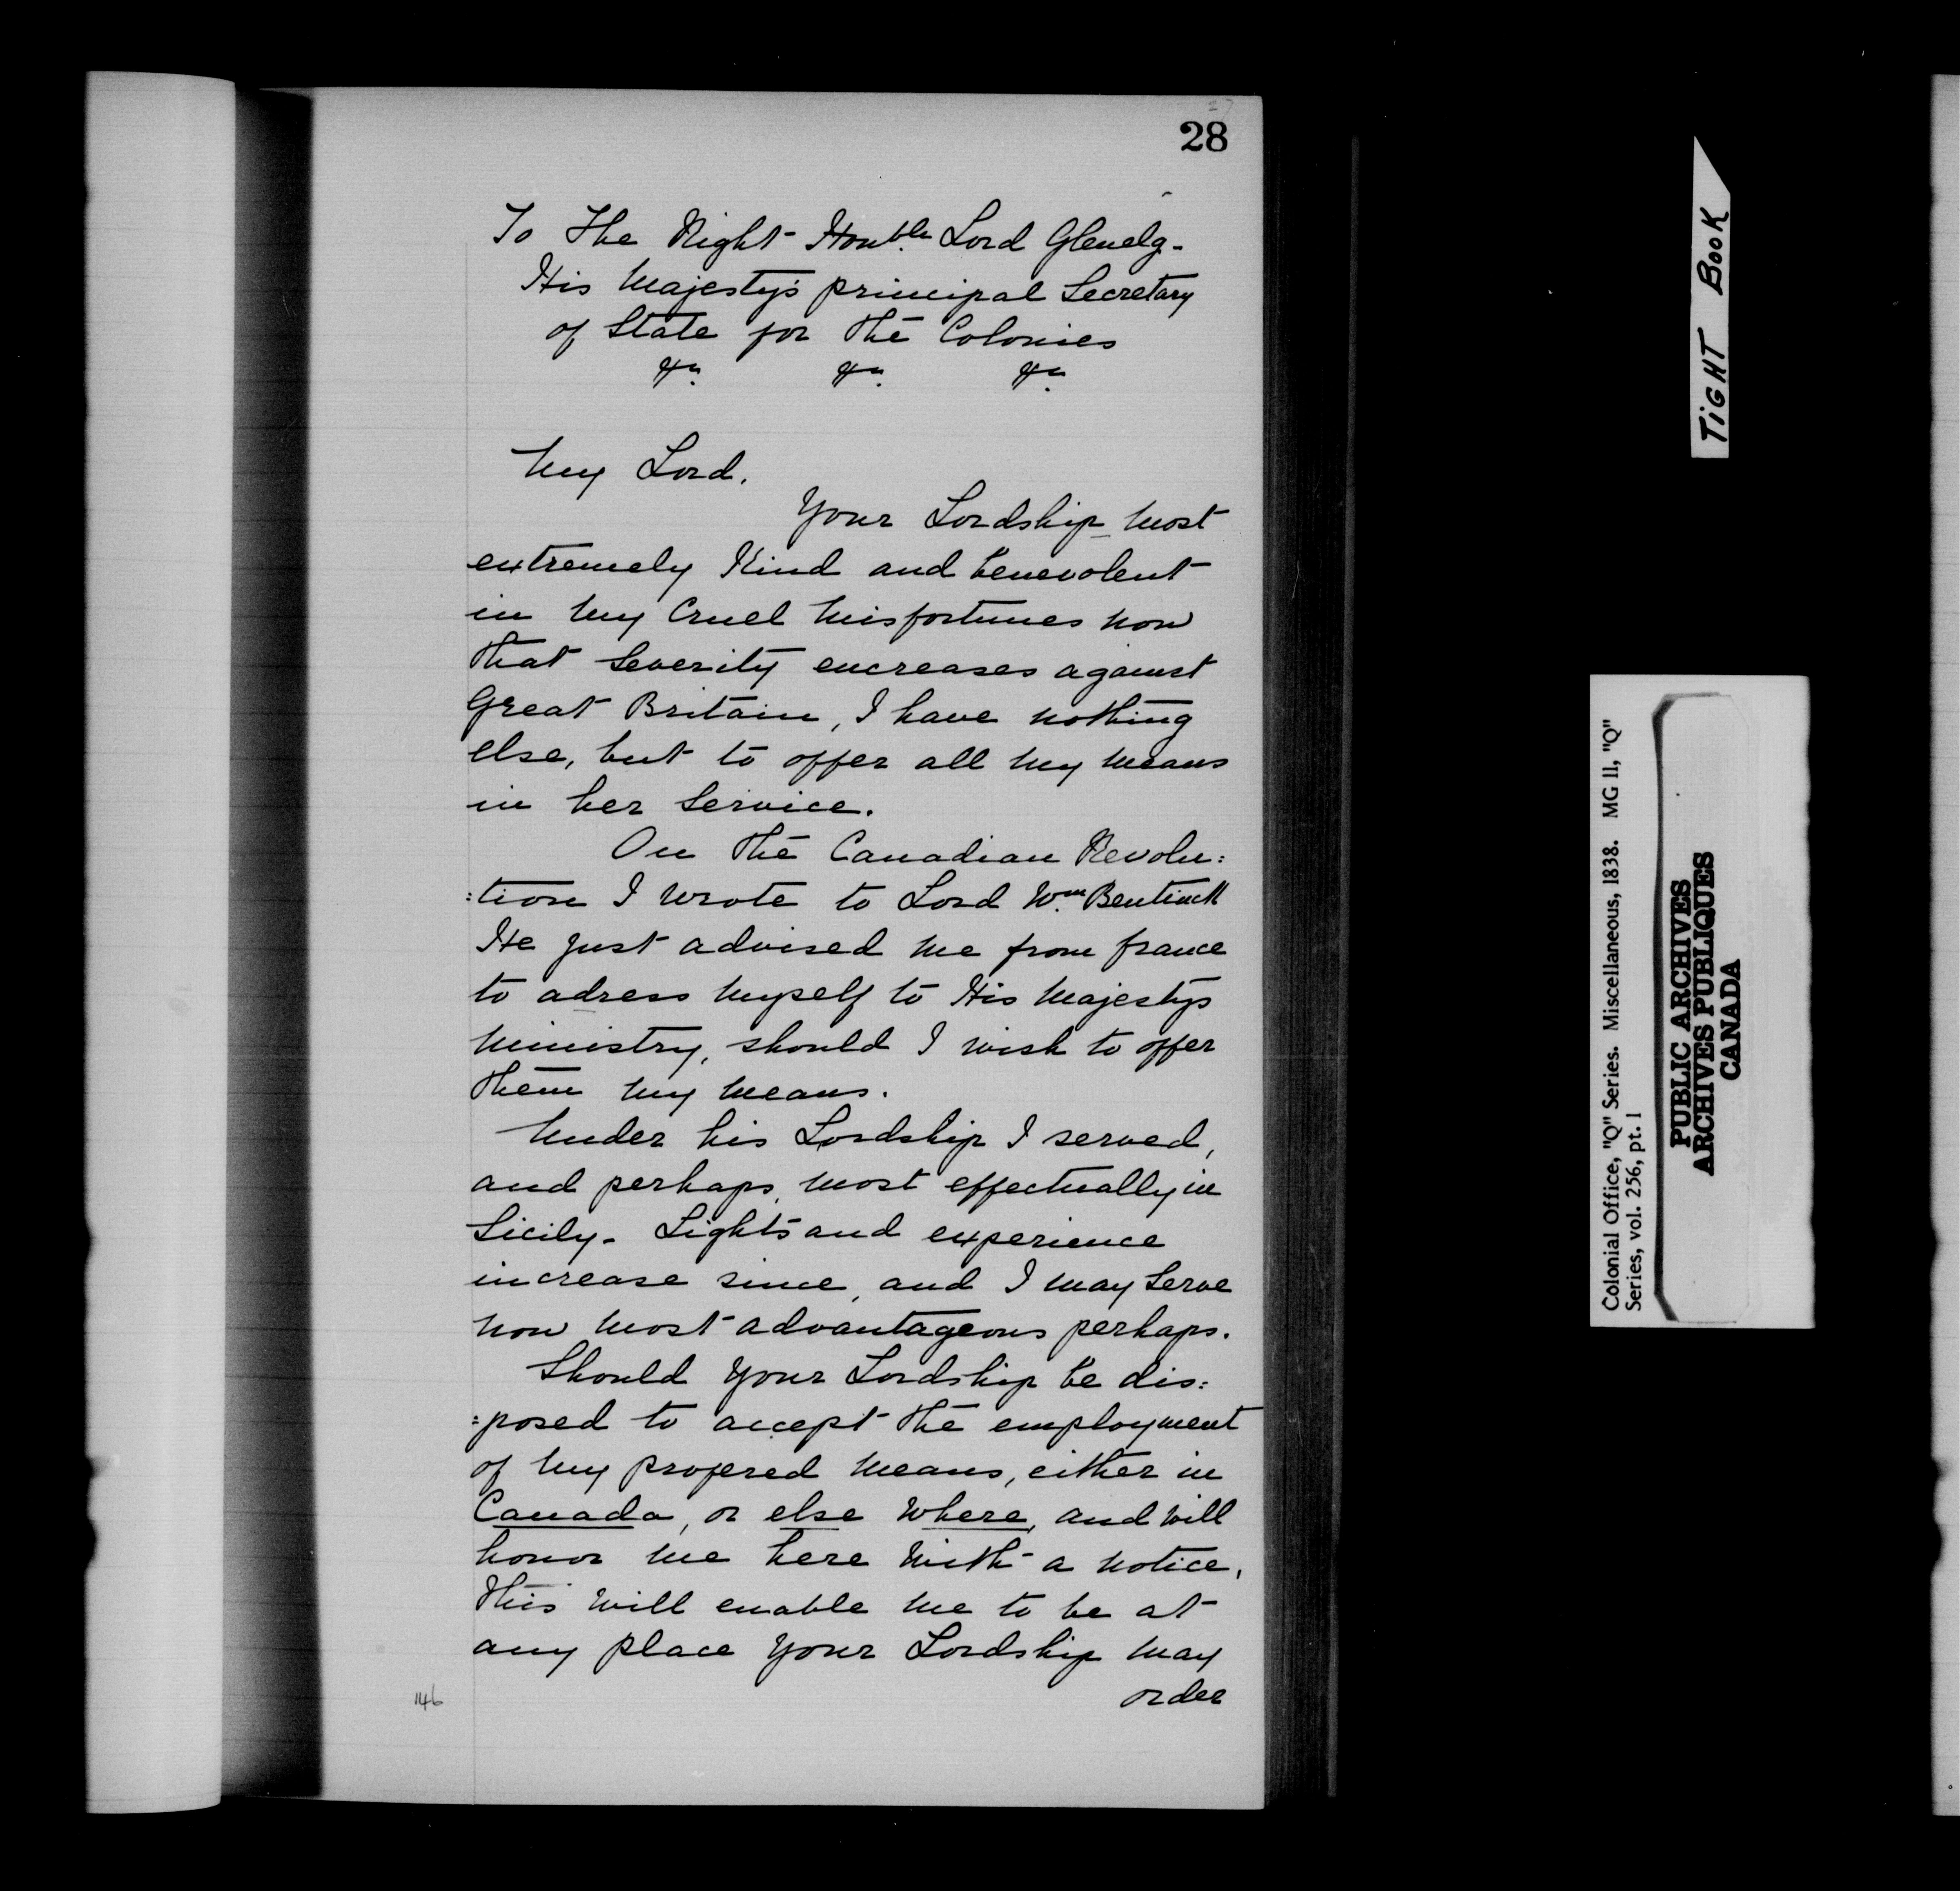 27
28
To The Right Honble. Lord Glenelg-
His Majesty's principal Secretary
of State for the Colonies
&c. &c. &c.
My Lord,
Your Lordship most
extremely Kind and benevolent
in my Cruel Misfortunes now
that Severity encreases against
Great Britain, I have nothing
else, but to offer all my means
in her Service.
On the Canadian Revolu:
:tion I wrote to Lord Wm. Bentinck
He just advised me from france
to adress myself to His Majestys
Ministry, should I wish to offer
them my means.
Under his Lordship I served,
and perhaps, most effectually in
Sicily- Lights and experience
increase since, and I may Serve
now most advantageous perhaps.
Should Your Lordship be dis:
:posed to accept the employment
of my profered means, either in
Canada, or else where, and will
honor me here with a notice,
this will enable me to be at
any place your Lordship may
order
146
TIGHT BOOK
Colonial Office, "Q" Series. Miscellaneous, 1838. MG 11, "Q"
Series, vol. 256, pt. 1
PUBLIC ARCHIVES
ARCHIVES PUBLIQUES
CANADA